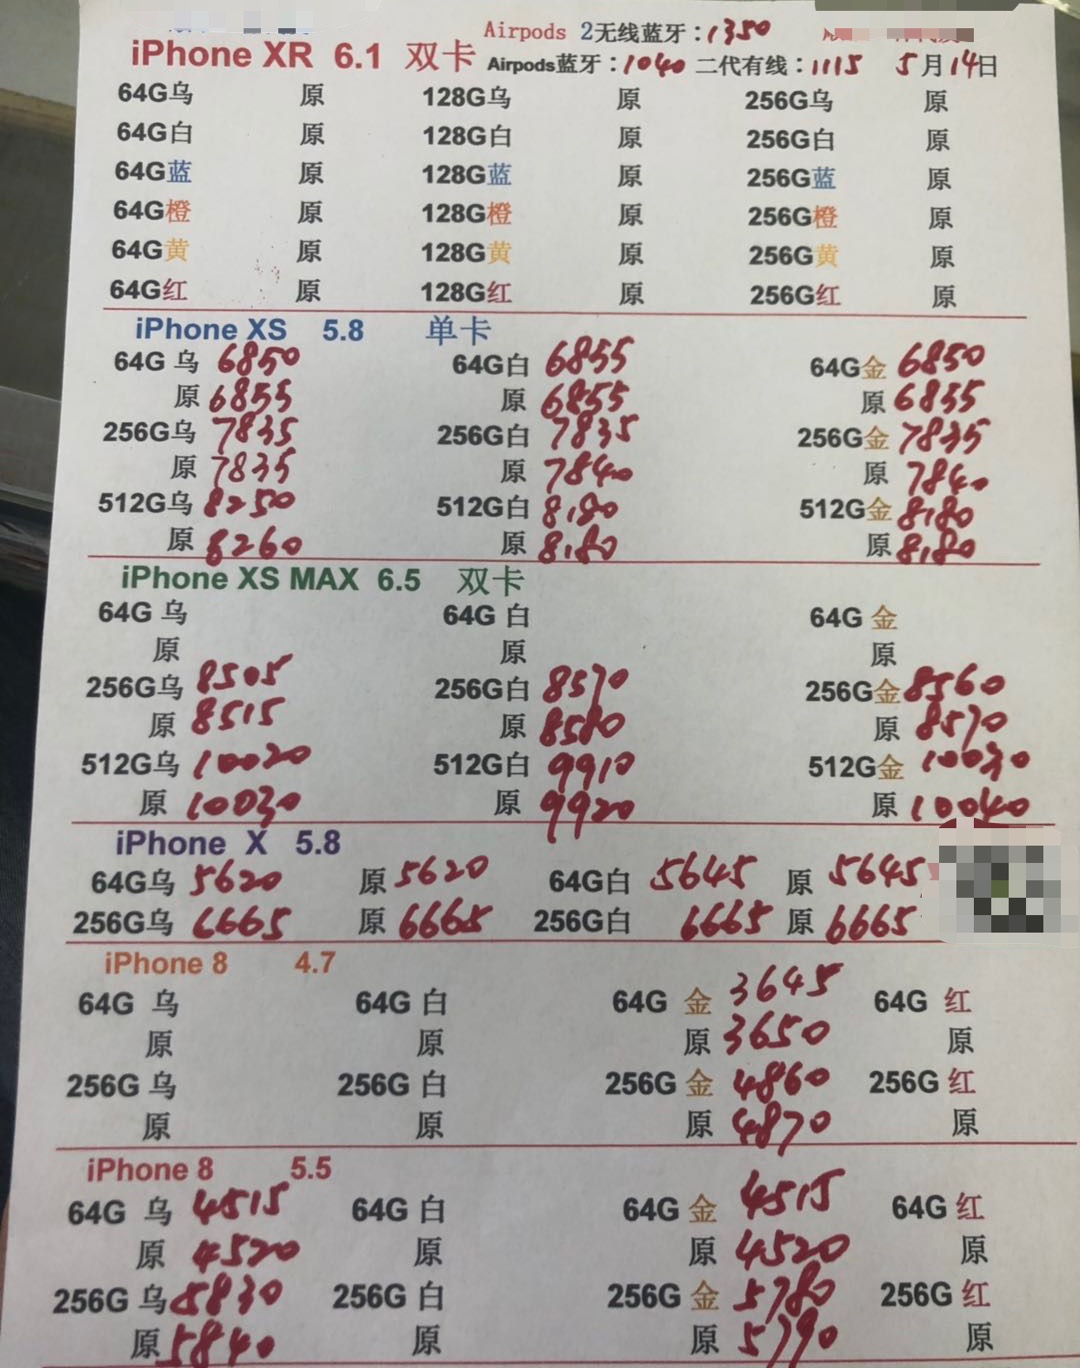 Airpods 2无线蓝牙：1350
iPhone XR 6.1 双卡 Airpods蓝牙：1040 二代有线：1115 5月14日
64G乌 原 128G乌 原 256G乌 原
64G白 原 128G白 原 256G白 原
64G蓝 原 128G蓝 原 256G蓝 原
64G橙 原 128G橙 原 256G橙 原
64G黄 原 128G黄 原 256G黄 原
64G红 原 128G红 原 256G红 原
iPhone XS 5.8 单卡
64G 乌 6850 64G白 6855 64G金 6850
原 6855 原 6855 原 6855
256G乌 7835 256G白 7835 256G金 7835
原 7835 原 7840 原 7840
512G乌 8250 512G白 8180 512G金 8180
原 8260 原 8180 原 8180
iPhone XS MAX 6.5 双卡
64G 乌 64G 白 64G 金
原 原 原
256G乌 8505 256G白 8570 256G金 8560
原 8515 原 8580 原 8570
512G乌 10020 512G白 9910 512G金 10030
原 10030 原 9920 原 10040
iPhone X 5.8
64G乌 5620 原 5620 64G白 5645 原 5645
256G乌 6665 原 6665 256G白 6665 原 6665
iPhone 8 4.7
64G 乌 64G 白 64G 金 3645 64G 红
原 原 原 3650 原
256G 乌 256G 白 256G 金 4860 256G 红
原 原 原 4870 原
iPhone 8 5.5
64G 乌 4515 64G 白 64G 金 4515 64G 红
原 4520 原 原 4520 原
256G 乌 5830 256G 白 256G 金 5780 256G 红
原 5840 原 原 5790 原